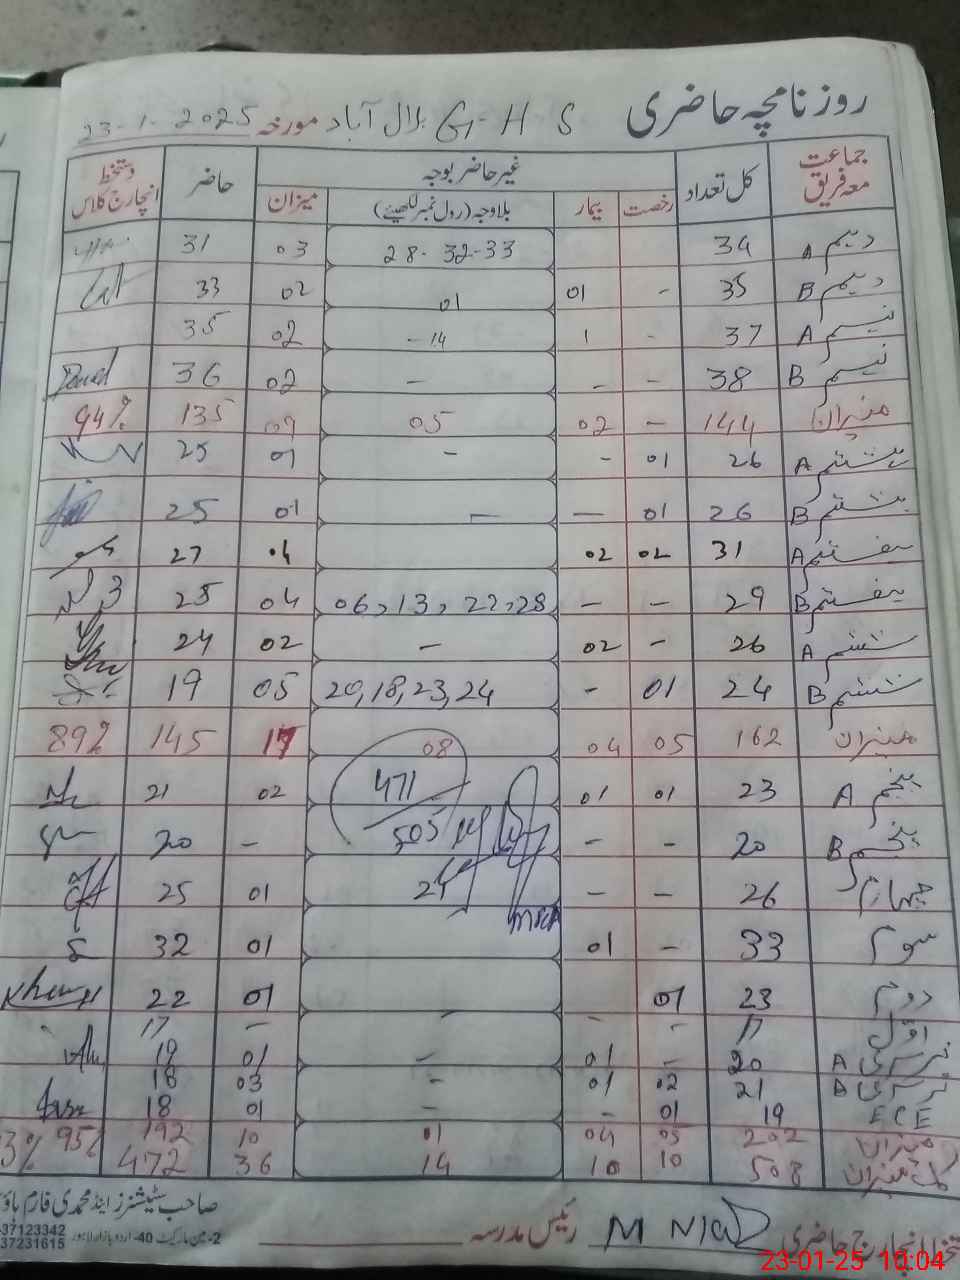 روزنامچہ حاضری G-H S بلال آباد مورخہ 23-1-2025
جماعت معہ فریق کل تعداد غیر حاضر بوجہ حاضر دستخط انچارج کلاس
رخصت بیمار بلاوجہ (رول نمبر لکھیئے) میزان
دہم A 34 28-32-33 03 31
دہم B 35 - 01 01 02 33
نہم A 37 - 1 -14 02 35
نہم B 38 - - - 02 36
میزان 144 - 02 05 09 135 94%
ہشتم A 26 01 - - 01 25
ہشتم B 26 01 — — 01 25
ہفتم A 31 02 02 04 27
ہفتم B 29 - - 06, 13, 22, 28 04 25
ششم A 26 - 02 - 02 24
ششم B 24 01 - 20, 18, 23, 24 05 19
میزان 162 05 04 08 17 145 89%
پنجم A 23 01 01 471 02 21
پنجم B 20 - - 505 - 20
چہارم 26 - - 24 01 25
سوم 33 - 01 01 32
دوم 23 01 01 22
اول 17 - - - 17
نرسری A 20 - 01 - 01 19
نرسری B 21 02 01 - 03 18
ECE 19 01 - - 01 18
میزان 202 05 04 01 10 192 95%
کل میزان 508 10 10 14 36 472 3%
انچارج حاضری رئیس مدرسہ
صاحب سٹیشنرز اینڈ محمدی فارم ہاؤس
2-مین مارکیٹ 40- اردو بازار لاہور
37123342
37231615
23-01-25 10:04